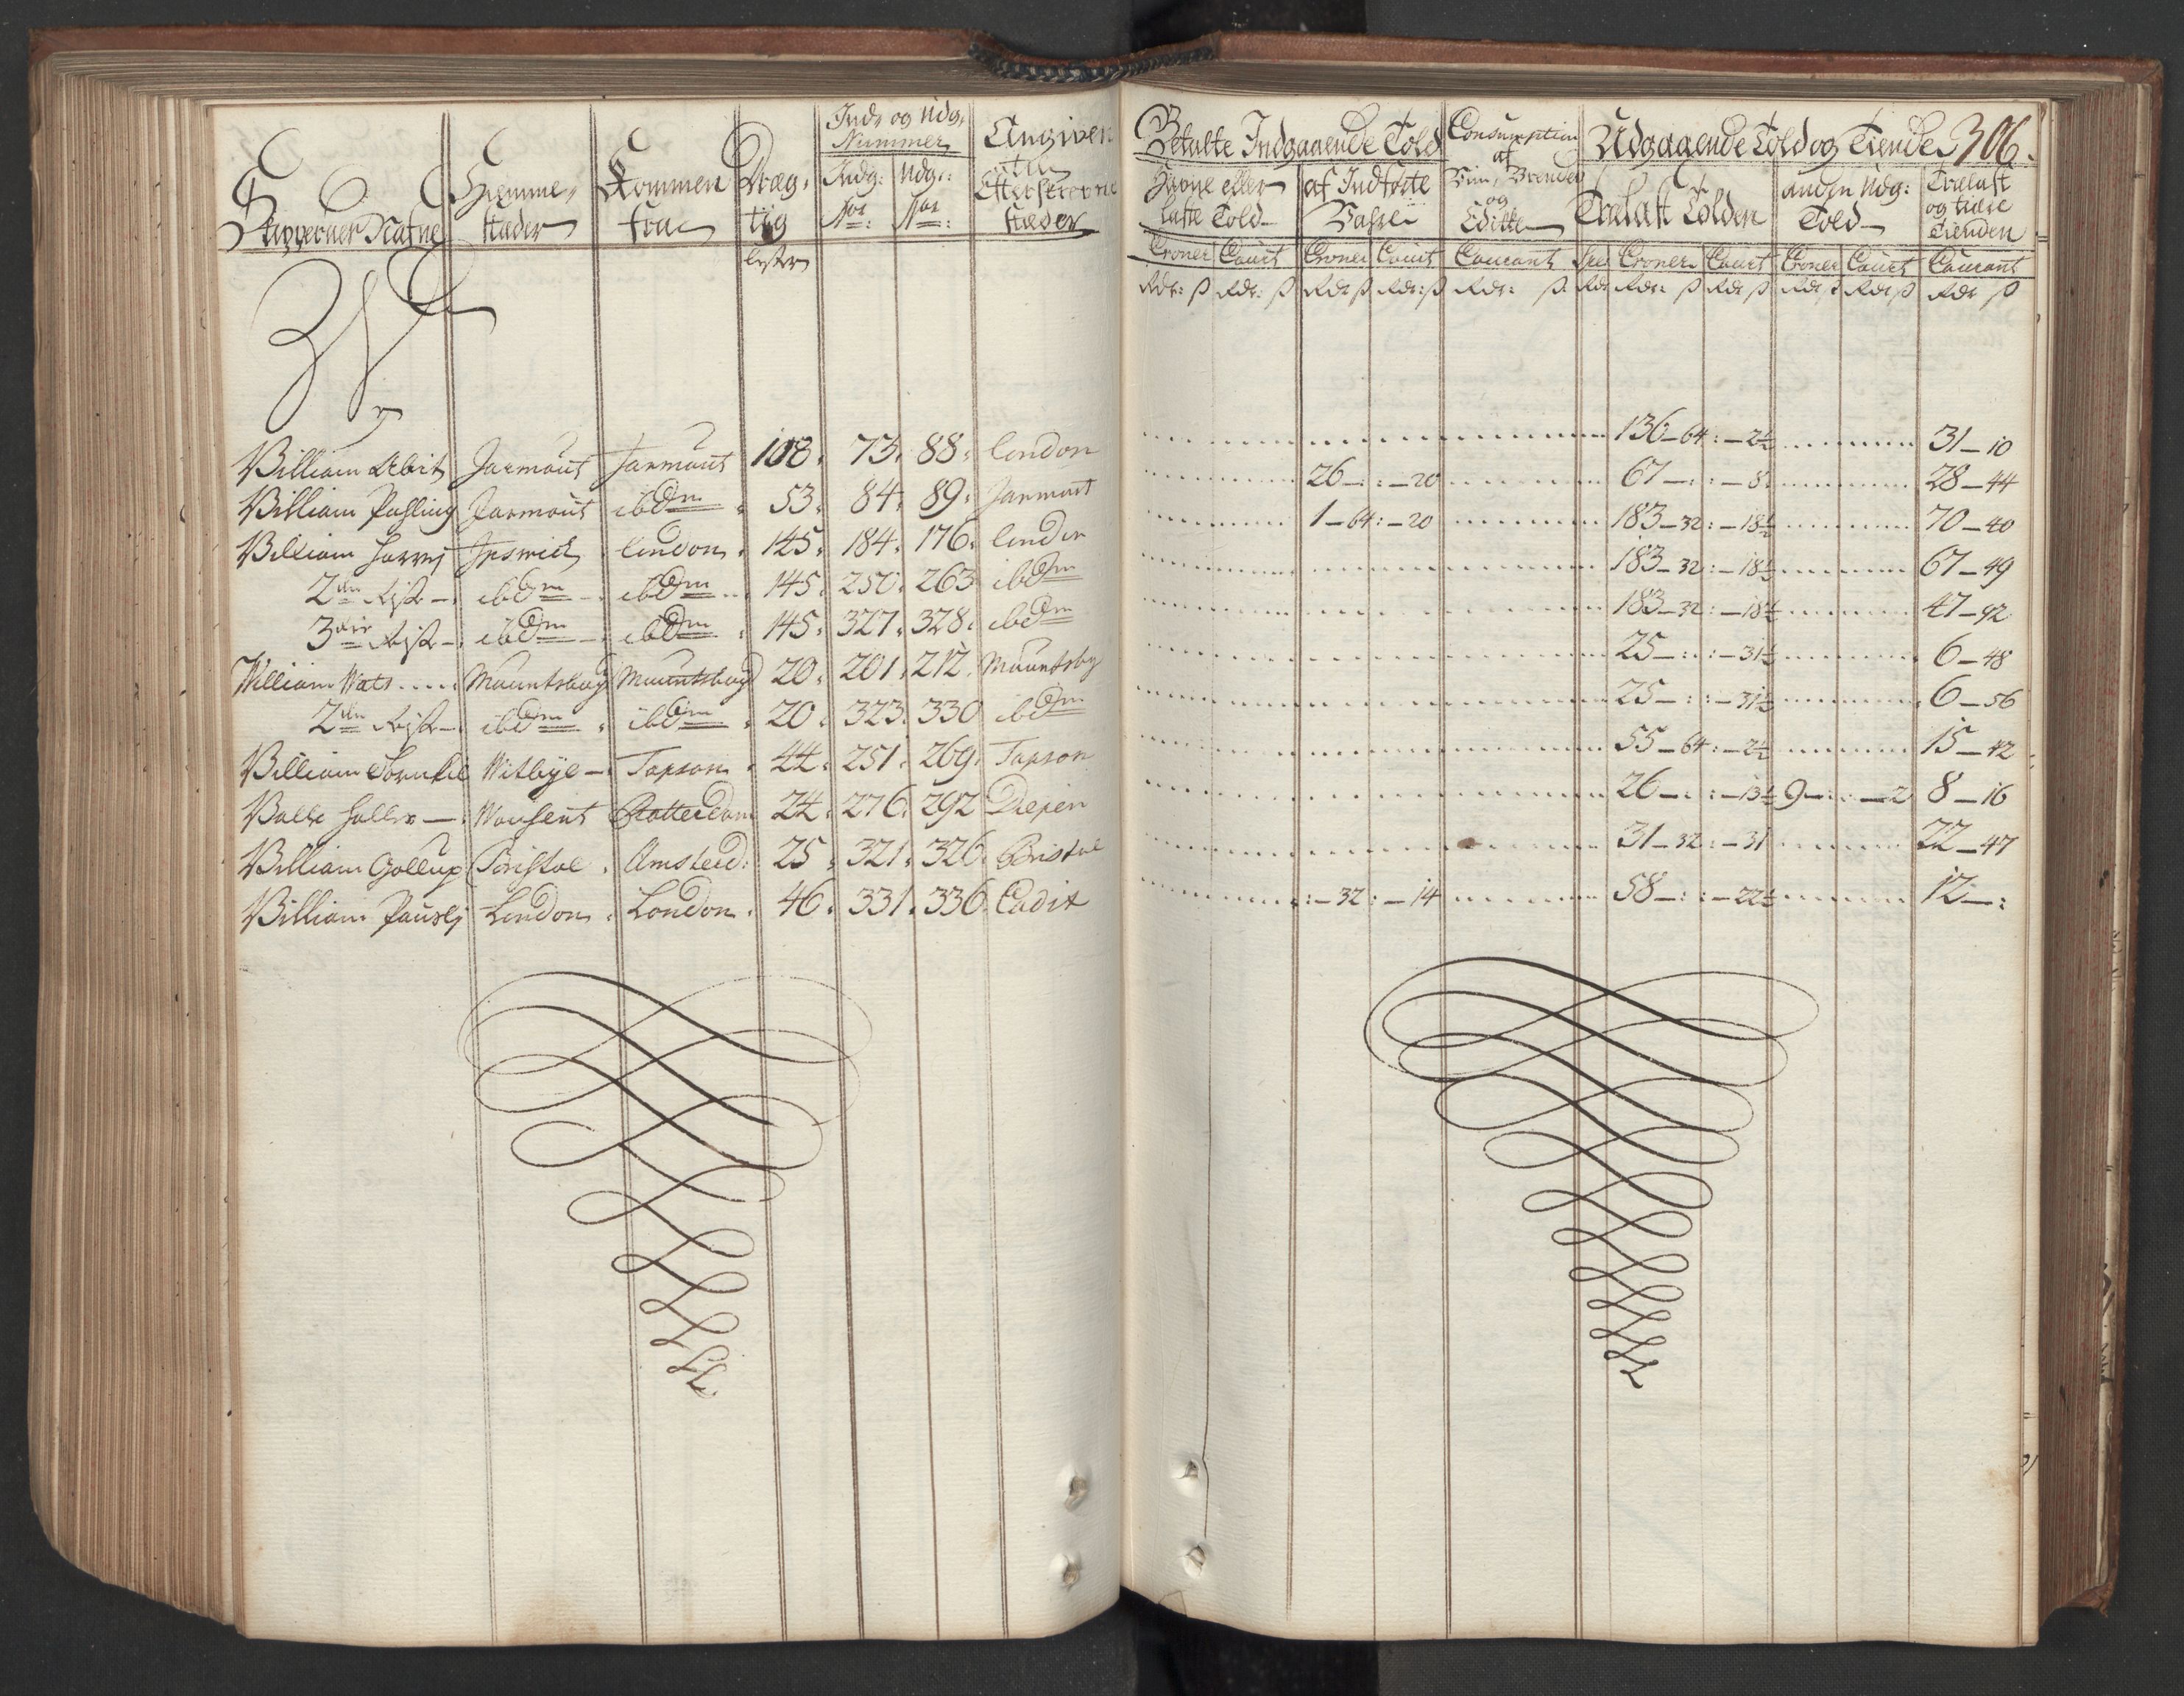 Skipperner Nafne | Hiemme, stæder | Kommen fra | Dræg, tig | Inds og Udg, Nummer | Angiven til Efterskrevne stæder
Indg: No: | Udg: No:
lester
W
William Abit | Jarmout | Jarmout | 108. | 73. | 88. | London
William Pashling | Jarmout | ibdm | 53. | 84. | 89. | Jarmout
William Harris | Ipswich | London | 145. | 184. | 176. | London
2den Rejse | ibdm | ibdm | 145. | 250. | 263 | ibdm
3die Rejse | ibdm | ibdm | 145. | 327. | 328. | ibdm
William Wats | Mauntsbay | Mauntsbay | 20. | 201. | 212. | Mauntsby
2den Rejse | ibdm | ibdm | 20. | 323. | 330 | ibdm
William | Witbye | Tapson | 44. | 251. | 269. | Tapson
Haller | Rotterdam | 24. | 276. | 292 | Diepen
William Gollup | Bristol | Amsterd: | 25. | 321. | 326. | Bristol
William | London | London | 46. | 331. | 336. | Cadix
Betalte Indgaaende Told | Consumption af Viin, Brende og Edikke | Udgaaende Told og Tiende 306.
eller Told | af Indførte | Trælast Tolden | anden Udg: Told | Trælast og Tienden
Croner | Court | Croner | Court | Courant | Croner | Court | Croner | Court | Courant
Rdr: ß | Rdr: ß | Rdr ß | Rdr: ß | Rdr: ß | Rdr | Rdr: ß | Rdr ß | Rdr ß | Rdr ß | Rdr ß
136–64 | :–2½ | 31–10
26–: | :–20 | 67–: | :–8 | 28–44
1–64 | :–20 | 183–32 | :–18½ | 70–40
183–32 | :–18½ | 67–49
183–32 | :–18½ | 47–92
25–: | :–31½ | 6–48
25–: | :–31½ | 6–56
55–64 | :–2½ | 15–42
26–: | :–13½ | 9–: | :–2 | 8–16
31–32 | :–31 | 22–47
:–32 | :–14 | 58–: | :–22½ | 12–: